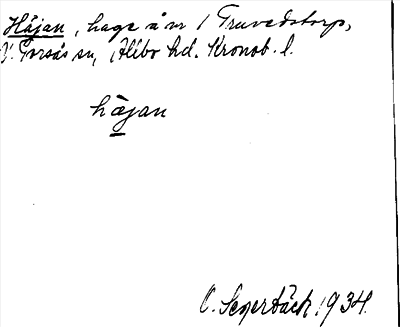 Håjan, hage å nr 1 Truvedstorp,
V. Torsås sn, Allbo hd. Kronob. l.
håjan
C. Segerbäck 1934.